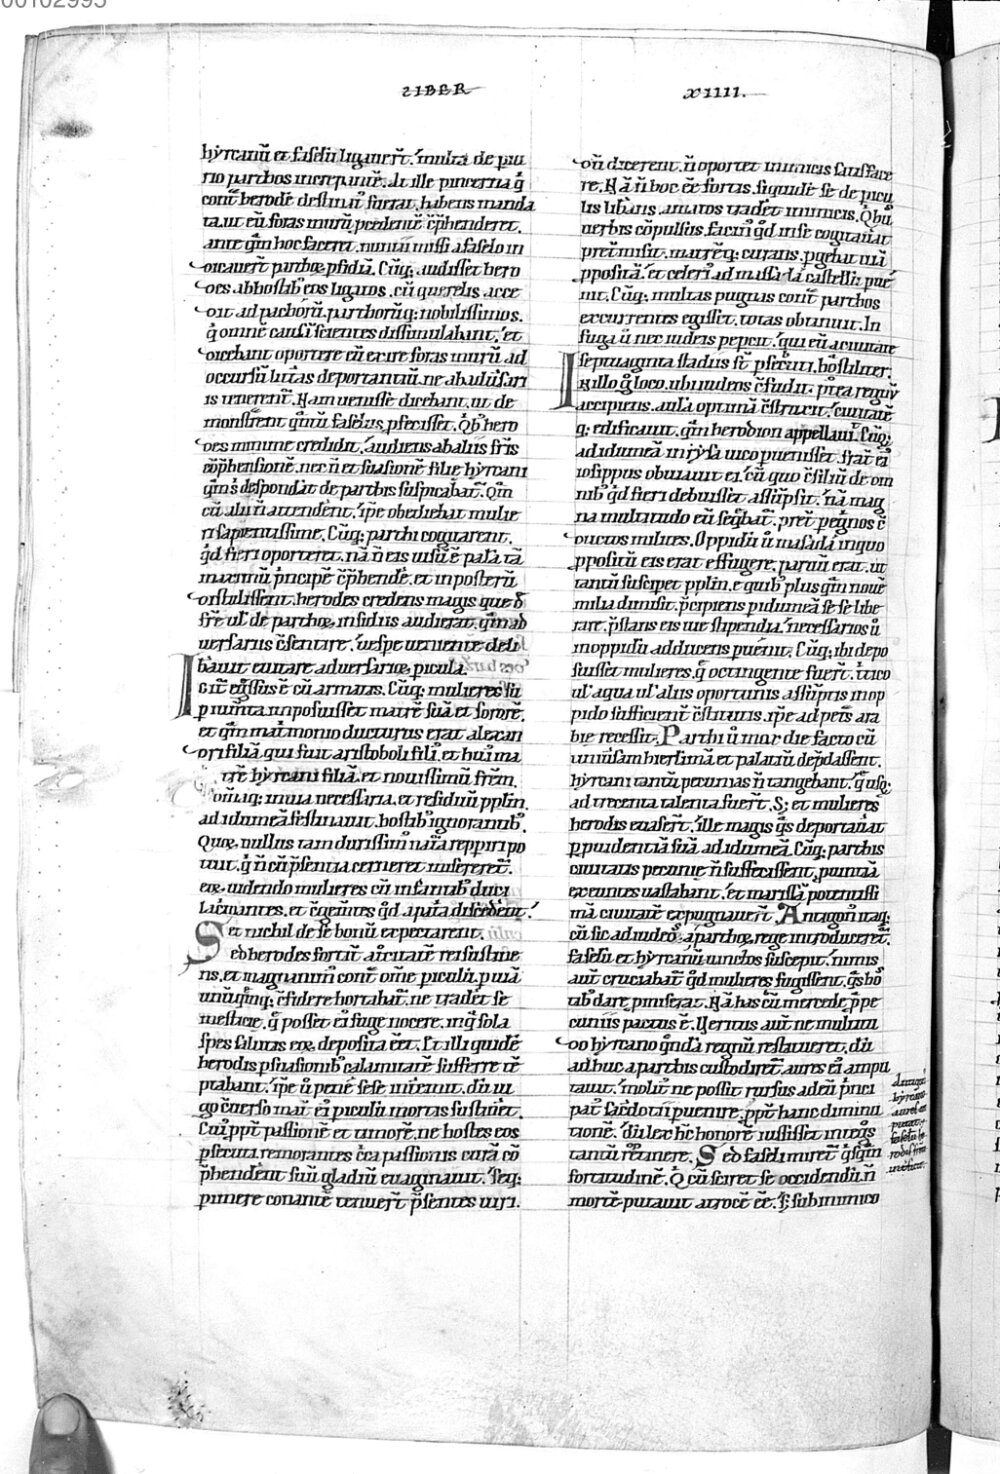 00102995
LIBER XIIII.
hyrcanū et faselū ligauer̄t. multa de piu
rio parthos increpantē. At ille pincerna q̄
cont̄ herodē destinat᷒ fuerat, habens manda
ta. ut eū foras murū p̄cedentē cp̄henderet.
ante qm̄ hoc faceret. nuntii missi a faselo in
dicauer̄t parthoꝝ p̄fidiā. Cūq; audisset hero
des ab hostib᷒ eos ligatos. cū querelis acce
dit ad pachorū. parthorūq; nobilissimos.
q̄ omnē causā scientes dissimulabant. et
dicebant oportere eū exire foras murū ad
occursū litt̄as deportantiū. ne ab aduersari
is uenerent̄. Nam uenisse dicebant. ut de
monstrent qm̄tū faselus p̄fecisset. Qb᷒ hero
des minime credidit. audiens ab aliis fr̄is
cōp̄hensionē. nec n̄ et suasionē filie hyrcani
despondat̄ de parthis suspicabat̄. Qm̄
cū alii n̄ attendent̄. ip̄e obediebat mulie
ri sapientissime. Cūq; parthi cogitarent.
qd̄ fieri oporteret. nā n̄ eis uisū ē palā tā
p̄ncipē cp̄hendē. et in posterū
distulissent. herodes credens magis que d̄
fr̄e ul᷒ de parthoꝝ insidiis audierat. qm̄ ab
uersariis c̄sentire. uespe ueniente deli
bauit euitare aduersarioꝝ picula.
Et egssus ē cū armatis. Cūq; mulieres sū
p iumta inposuisset matrē suā et sororē.
et qm̄ matmonio ducturus erat alexan
dri filiā. qui fuit aristoboli fili᷒. et hui᷒ ma
trē hyrcani filiā. et nouissimū fr̄em.
om̄iaq; necessaria. et residuū pplm̄.
ad idumeā festinauit. hostib᷒ ignorantib᷒.
Quoꝝ nullus tam durissim᷒ nat̄a reppiri po
tuit. q̄ n̄ cū p̄sentia cerneret misereret̄
eoꝝ. uidendo mulieres cū infantib᷒ duci
lac̄mantes. et c̄gem̄tes qd̄ a pat̄a discedent.
Et nichil de se bonū expectarent.
Sed herodes fortit̄ atrocitatē rei sustine
ns. et magnanim᷒ cont̄ om̄e piculū. p uiā
unūqmq; c̄fidere hortabat̄. ne tradet̄ se
mesticie. q̄ posset ei fuge nocere. in q̄ sola
spes salutis eoꝝ. deposita ēet. Et illi quidē
herodis p̄suasionib᷒ calamitatē sufferre tē
ptabant. ip̄e ū pene sese interemit. dū iu
go c̄uerso mat̄ ei piculū mortis sustinet.
Cui ppt̄ passionē et timorē. ne hostes eos
p̄secuti. remorantes c̄ca passionis curā cō
p̄hendent̄ suū gladiū euaginauit. Seq;
pimere conantē tenuer̄t p̄sentes uiri.
dū dicerent. n̄ oportet inimicis satisface
re. Nā n̄ hoc ēe fortis. siquidē se de picu
lis libans. amicos tradet inimicis. Qb᷒
uerbis cōpulsus, facin᷒ qd̄ in se cogitabat
pret̄misit. matrēq; curans. pgebat uiā
ppositā. et celerit̄ ad massadā castellū pue
nit. Cūq; multas pugnas cont̄ parthos
excurrentes egisset. totas obtinuit. In
fuga ū nec iudeis pepcit. qui eū a ciuitate
septuaginta stadiis st̄ p̄secuti. hostiliter.
In illo q̄ loco. ubi iudeos c̄fudit. p̄tea regnū
accipiens. aulā optimā c̄struxit. ciuitatē
q; edificauit. qm̄ herodion appellauit. Cūq;
ad idumeā in rysa uico puenisset. frat̄ ei
iosippus obuiauit ei. cū quo c̄siliū de om
nib᷒ qd̄ fieri debuisset assūpsit. nā mag
na multitudo eū seqbat̄. pret̄ pegnos c̄
ductos milites. Oppidū ū masada in quo
ppositū eis erat effugere. paruū erat. ut
tantū suscipet pplm̄. e quib᷒ plus qm̄ nouē
milia dimisit. p̄cipiens p idumeā se se libe
rare. p̄stans eis uie stipendia. necessarios ū
in oppidū adducens puenit. Cūq; ibi depo
suisset mulieres. q̄ octingente fuer̄t. t̄tico
ul᷒ aqua ul᷒ aliis oportunis assūptis in op
pido sufficient̄ c̄stitutis. ip̄e ad petrā ara
bie recessit. Parthi ū mox die facto cū
uniūsam hierlimā et palatiū dep̄dassent.
hyrcani tantū pecunias n̄ tangebant. q̄ usq;
ad trecenta talenta fuer̄t. S; et mulieres
herodis euaser̄t. ille magis q̄s deportabat
p puidentiā suā ad idumeā. Cūq; parthis
ciuitatis pecunie n̄ suffecissent. puintiā
exeuntes uastabant. et marissā potentissi
mā ciuitatē expugnauer̄t. Antigon᷒ itaq;
cū sic ad iudeos a parthoꝝ rege introduceret̄.
faselū et hyrcanū uinctos suscepit. nimis
aut̄ cruciabat̄ qd̄ mulieres fugissent. q̄s ho
tib᷒ dare pmiserat. Nā has cū mercede p̄ pe
cuniis pactus ē. Veritus aut̄ ne multitu
do hyrcano qndā regnū restitueret. dū
adhuc a parthis custodiret̄. aures ei ampu
tauit. molit᷒ ne possit rursus ad eū p̄nci
pat᷒ sac̄dotii puenire. ppt̄ hanc diminu
tionē. dū lex h̄c honorē iussisset inteḡs
tantū retinere. Sed faseli miret̄ qsqm̄
fortitudinē. Q cū sciret se occidendū. n̄
mortē putauit atrocē ēe. s; sub inimico
hyrcano
aures